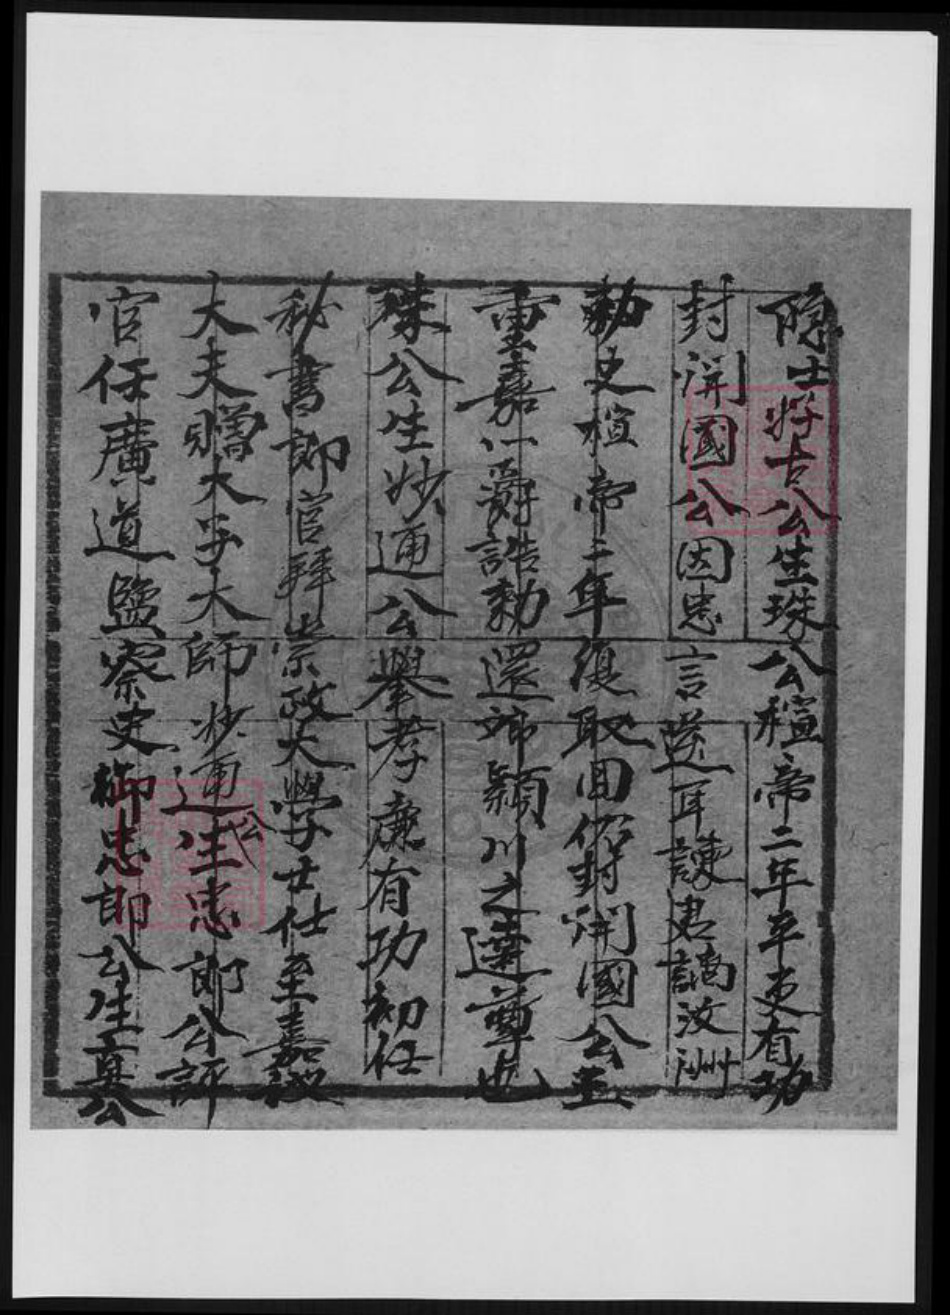 隱士將古公生珠公稙帝二年平吏有功
封開國公因忠言送耳諫君謫汝洲
勅史稙帝二年復取回仍封開國公至
重嘉八爵誥勅還歸穎川之達尊也
珠公生妙通公舉孝廉有功初任
秘書郎官拜崇政大學士仕至嘉議
大夫贈大子大師妙通公生忠郎公評
官任廣道監察史御忠郎公生真公